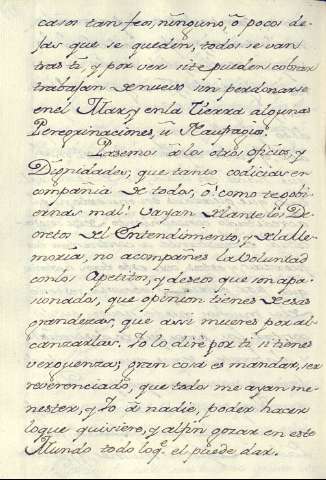 casos tan feos, ninguno, ô pocos de-
jas que se queden, todos se van
tras tí, y por ver si te pueden cobrar
trabajan de nuevo sin perdonarse
en el Mar, y en la Tierra algunas
Peregrinaciones, ú Naufragio.
Pasemos â los otros oficios, y
Dignidades, que tanto codicias en
compañia de todos, ô como te gobi-
ernas mal! vayan delante los De-
cretos del Entendimiento, y de la Me-
moria, no acompañes la Voluntad
con los Apetitos, y deseos que son apa-
sionados, que opinion tienes de esas
grandezas, que assi mueres por al-
canzarlas. Yo lo diré por ti si tienes
verguenza; gran cosa es mandar, ser
reverenciado, que todos me ayan me-
nester, y Yo â nadie, poder hacer
lo que quisiere, y al fin gozar en este
Mundo todo loq.e el puede dar.